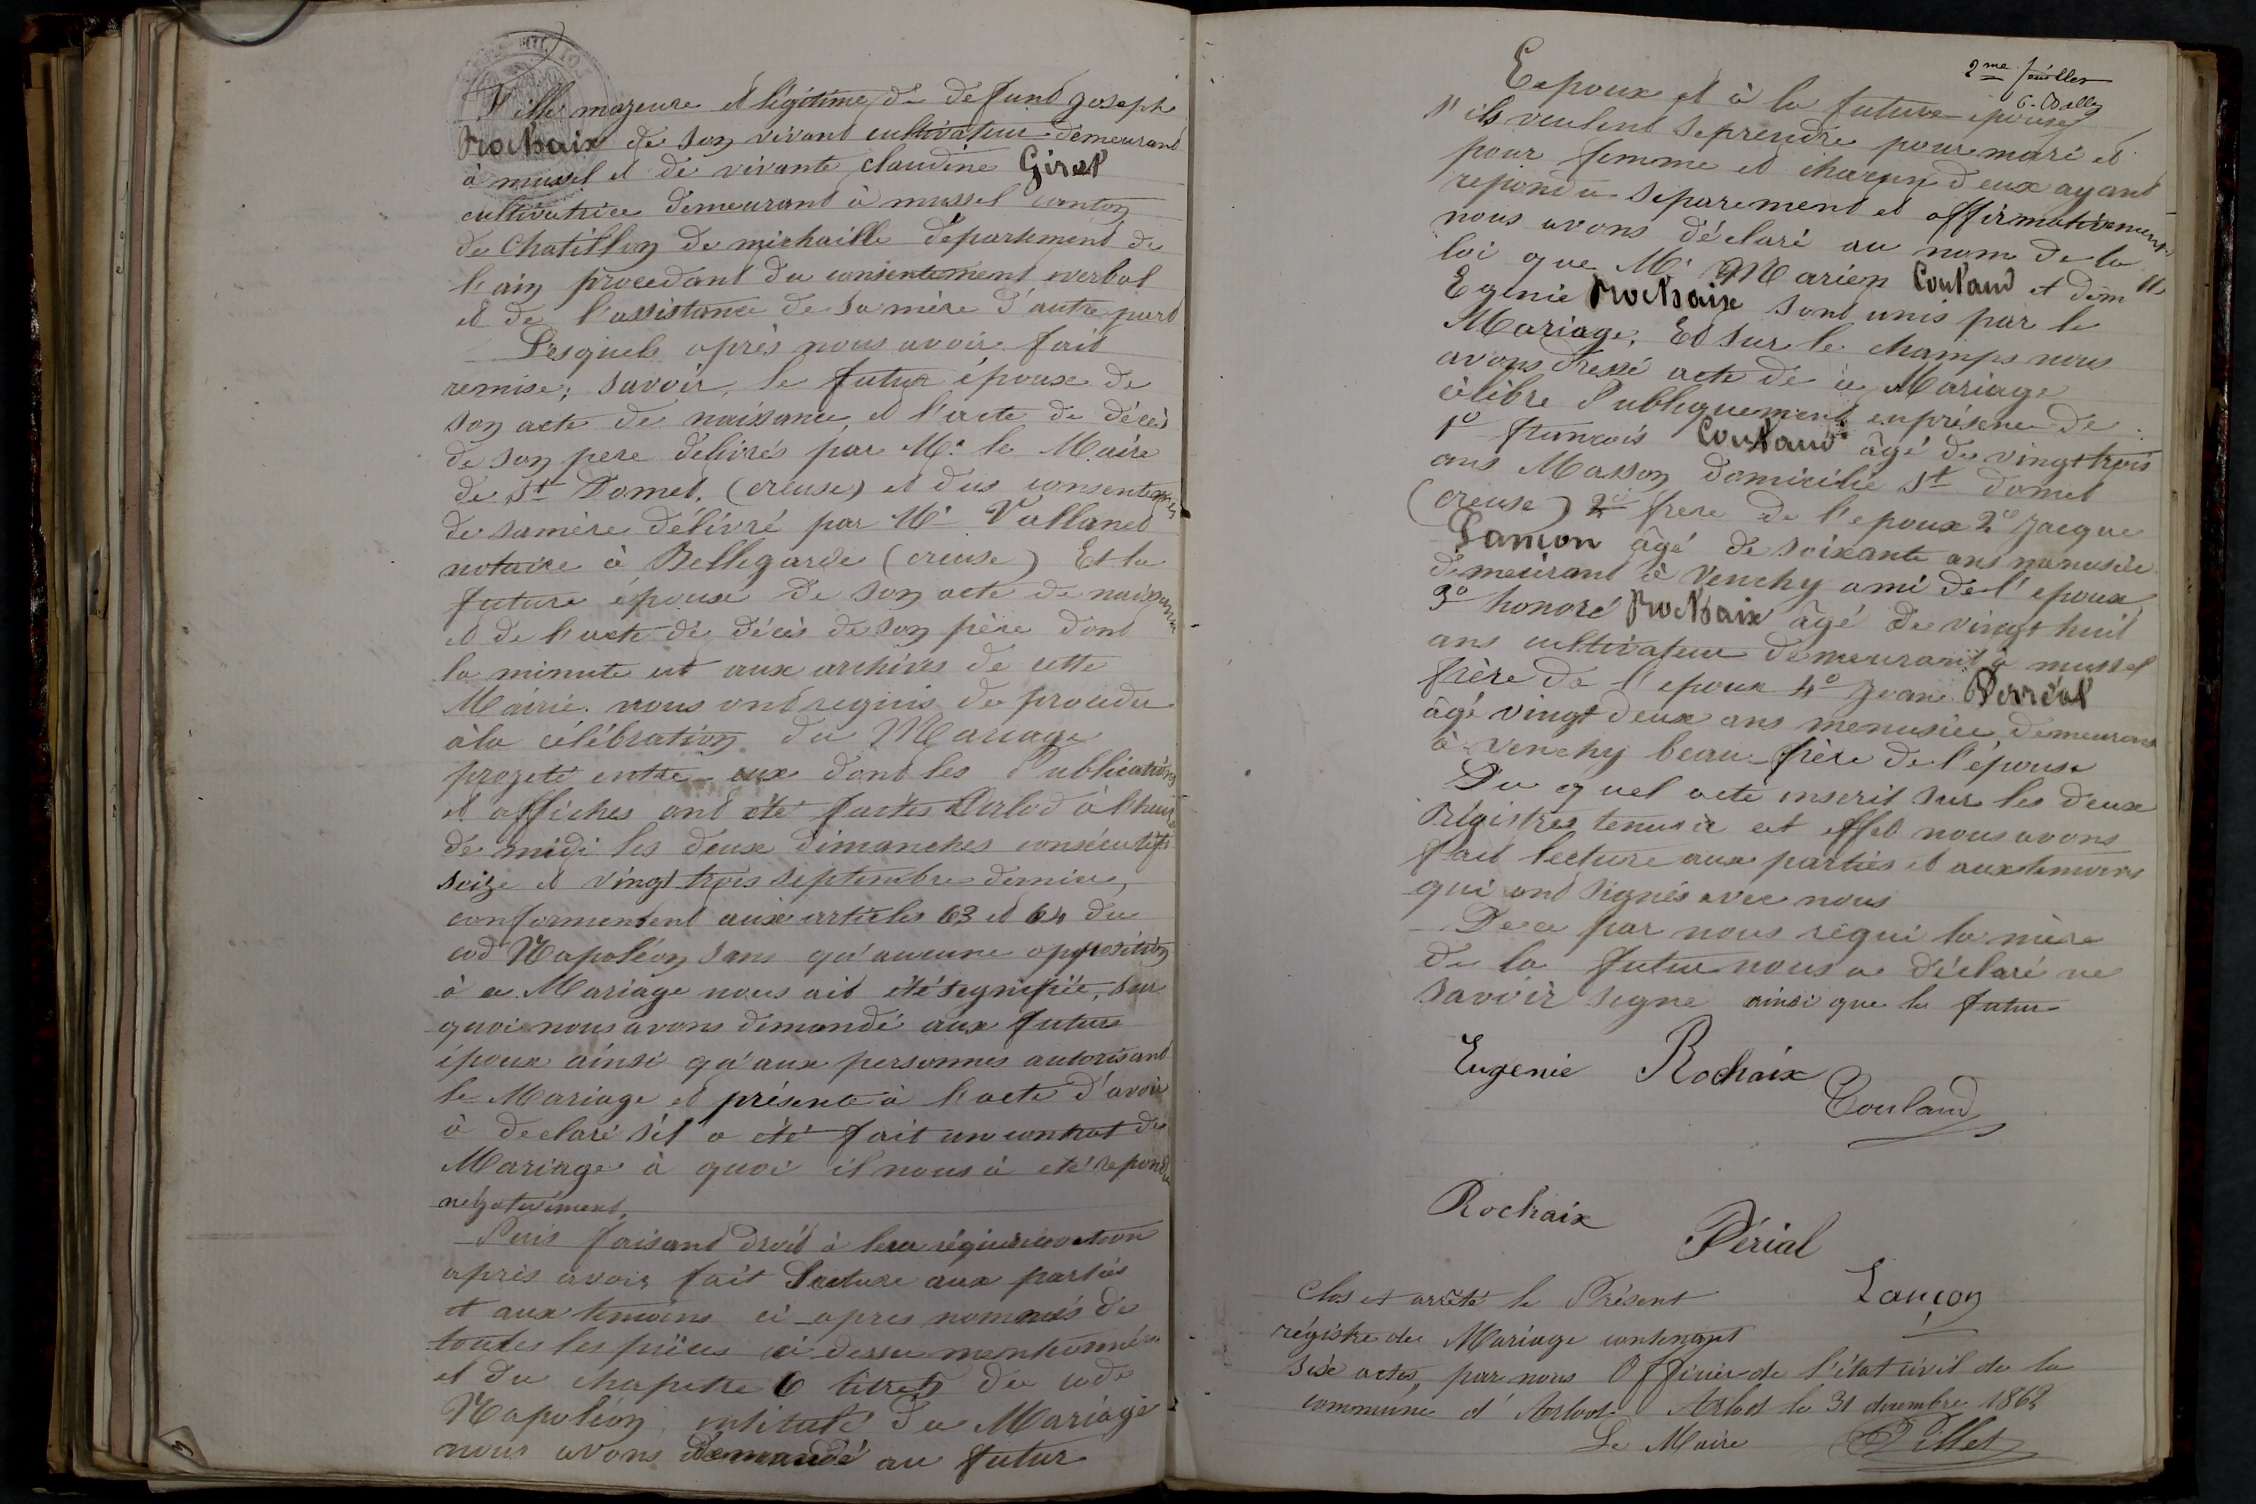 fille majeure et légitime de defunt joseph
Rochaix de son vivant cultivateur demeurant
à mussel et de vivante claudine Giret
cultivatrice demeurant à mussel canton
de Chatillon de michaille département de
l'ain procedant du consentement verbal
et de l'assistance de sa mère d'autre part
Lesquels après nous avoir fait
remise; savoir, le futur époux de
son acte de naissance, et l'acte de décès
de son pere délivrés par Mr le Maire
de St Domet, (creuse) et du consentement
de samère délivré par Mr Vallanet
notaire à Bellegarde (creuse) Et la
future épouse de son acte de naissance
et de l'acte de décès de son père dont
la minute est aux archives de cette
Mairie. nous ont requis de proceder
à la célébration du Mariage
projeté entre eux dont les Publications
et affiches ont été faites Arlod à l'heure
de midi les deux dimanches consécutifs
seize et vingt trois septembre dernier,
conformement aux articles 63 et 64 du
cod Napoléon sans qu'aucune opposition
à ce Mariage nous ait été segnifiée, sur
quoi nous avons demandé aux future
époux ainsi qu'aux personnes autorisant
le Mariage et présente à l'acte d'avoir
à declaré s'il a été fait un contrat de
Mariage à quoi il nous à été repondu
négativement,
Puis faisant droit à leur
après avoir fait Lecture aux parties
et aux temoins ci-apres nommés de
toutes les pièces ci dessu mentionnées
et du chapitre 6 du code
Napoléon, intitulé du Mariage
nous avons demandé au futur
2me feuillet
Epoux et à la future épouse
s'ils veulent seprendre pour mari et
pour femme et chacun d'eux ayant
repondu séparement et affirmativement
nous avons déclaré au nom de la
loi que Mr Marien Coutaud et dem lle
Egenie Rochaix sont unis par le
Mariage; Et sur le champs nous
avons dressé acte de ce Mariage
célèbre Publiquement enprésence de
1º françois Coutaud âgé de vingt trois
ans Masson domicilié St domet
(creuse) frere de l'epoux 2º Jacque
Lançon âgé de soixante ans menusier
demeurant à Venchy ami de l'epoux,
3º honoré Rochaix âgé de vingt huit
ans cultivateur demeurant à mussel
frère de l'epoux 4º Jean Perréal
âgé vingt deux ans menusier demeurant
à Venchy beau-frère de l'épouse
Du quel acte inscrit sur les deux
régistres tenus à cet effet nous avons
fait lecture aux parties et aux temoins
qui ont signés avec nous
De ce par nous réqui la mère
de la futur nous a déclaré ne
savoir signe ainsi que le futur
Eugenie Rochaix
Coutaud
Rochaix
Périal
Lançon
Clos et arrêté le Présent
régistre de Mariage contenant
sixe actes, par nous Officier de l'état civil de la
commune d'Arlod Arlod le 31 décembre 1862
Le Maire Pillet